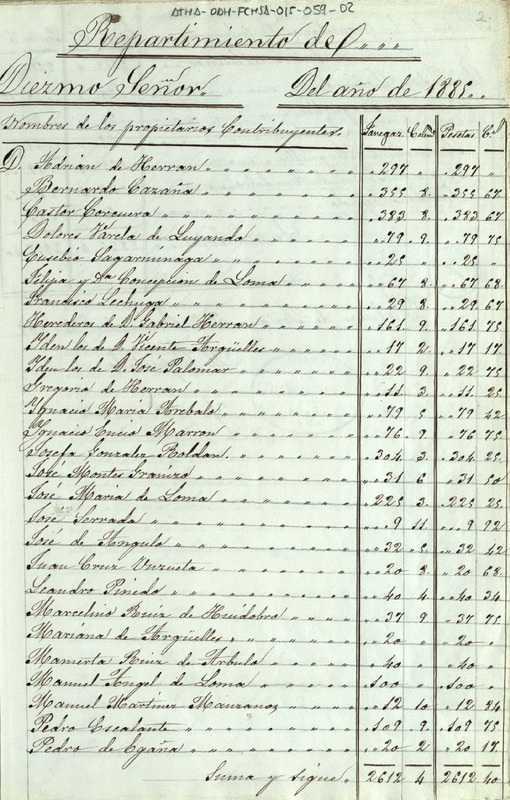 ATHA-DDH-FCHSA-015-059-02
2.
Repartimiento de
Diézmo Señor. Del año de 1885.
Nombres de los propietarios Contribuyentes. Fanegaz. Celem Pesetas C.s
D. Adrian de Herran 297 " 297 "
Bernardo Cazaña 355 8. 355 67
Castor Corcuera 383 8. 383 67
Dolores Varela de Luyando 79 9. 79 75
Eusebio Sagarminaga 25 " 25 "
Felipa y Da Concepcion de Loma 67 8. 67 68
Francisco Lechuga 29 8. 29 67
Herederos de D. Gabriel Herran 161 9 161 75
Iden los de D. Vicente Argüelles 17 2 17 17
Iden los de D. José Palomar 22 9 22 75
Gregoria de Herran 11 3 11 25
Ygnacio Maria Arebalo 79 5 79 42
Ygnacio Encio Marron 76 9. 76 75
Josefa Gonzalez Roldan 304 3 304 25
José Montes Granizo 31 6 31 50
José Maria de Loma 225 3. 225 25
José Serrada 9 11 9 92
José de Angulo 32 5. 32 42
Juan Cruz Unzueta 20 8. 20 68
Leandro Pinedo 40 4 40 34
Marcelino Ruiz de Huidobro 37 9 37 75
Mariana de Argüelles 20 " 20 "
Mamerta Ruiz de Arbulo 40 " 40 "
Manuel Angel de Loma 100 " 100 "
Manuel Martinez Manzanoz 12 10 12 84
Pedro Escalante 109 9. 109 75
Pedro de Egaña 20 2 20 17
Suma y sigue 2612 4 2612 40